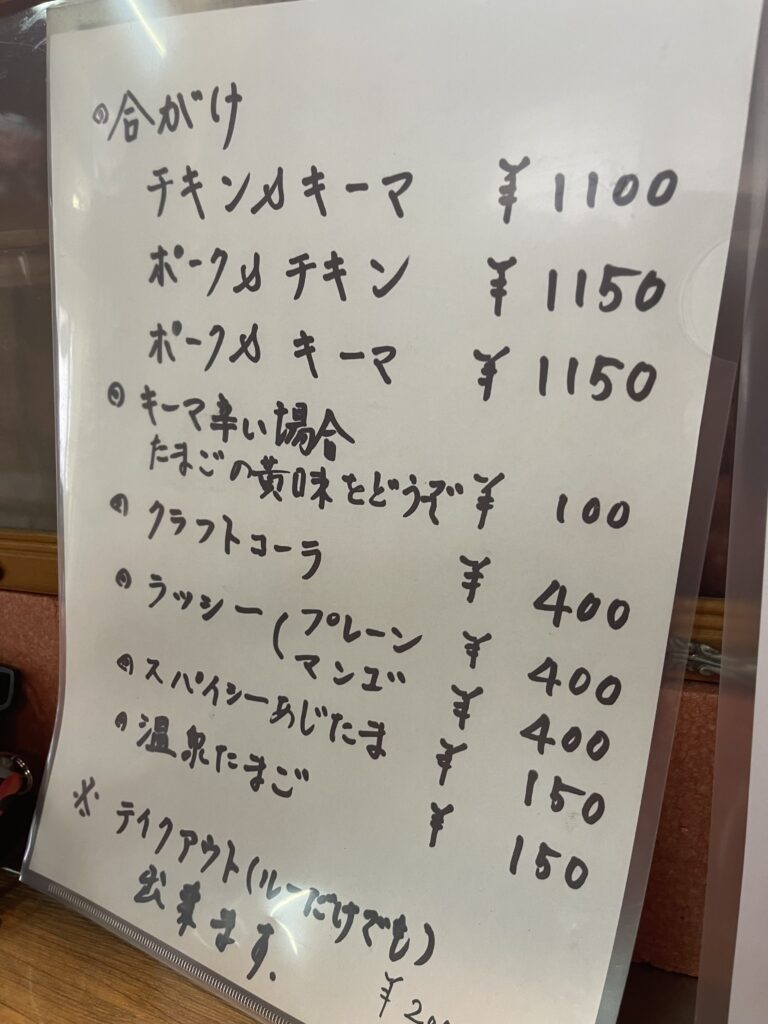 ●合がけ
チキン×キーマ ¥1100
ポーク×チキン ¥1150
ポーク×キーマ ¥1150
●キーマ辛い場合
たまごの黄味をどうぞ ¥100
●クラフトコーラ ¥400
●ラッシー(プレーン ¥400
マンゴ ¥400
●スパイシーあじたま ¥150
●温泉たまご ¥150
※テイクアウト(ルーだけでも)
出来ます.